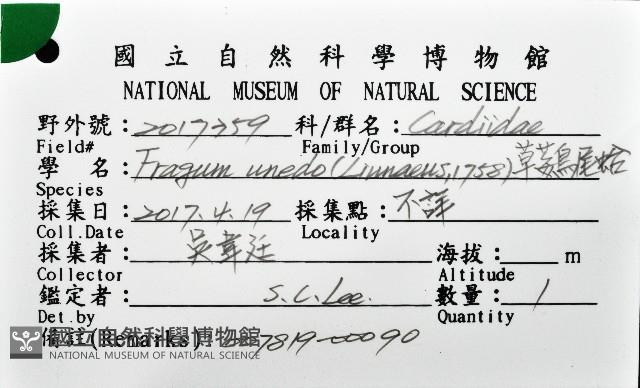 國立自然科學博物館
NATIONAL MUSEUM OF NATURAL SCIENCE
野外號：2017359 科/群名：Cardiidae
Field# Family/Group
學 名：Fragum unedo (Linnaeus, 1758) 草莓鳥尾蛤
Species
採集日：2017.4.19 採集點：不詳
Coll.Date Locality
採集者：吳韋廷 海拔： m
Collector Altitude
鑑定者：S.C.Lee. 數量：1
Det.by Quantity
備註(Remarks): 7819-00090
國立自然科學博物館
NATIONAL MUSEUM OF NATURAL SCIENCE